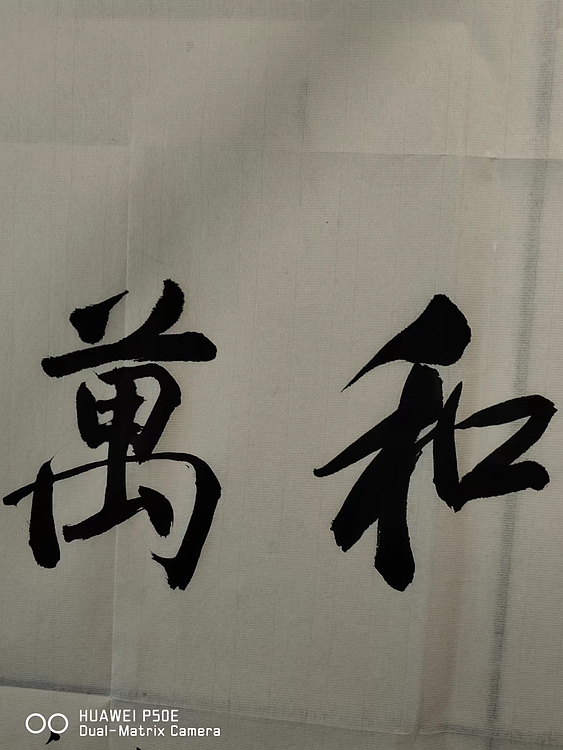 和萬
HUAWEI P50E
Dual-Matrix Camera